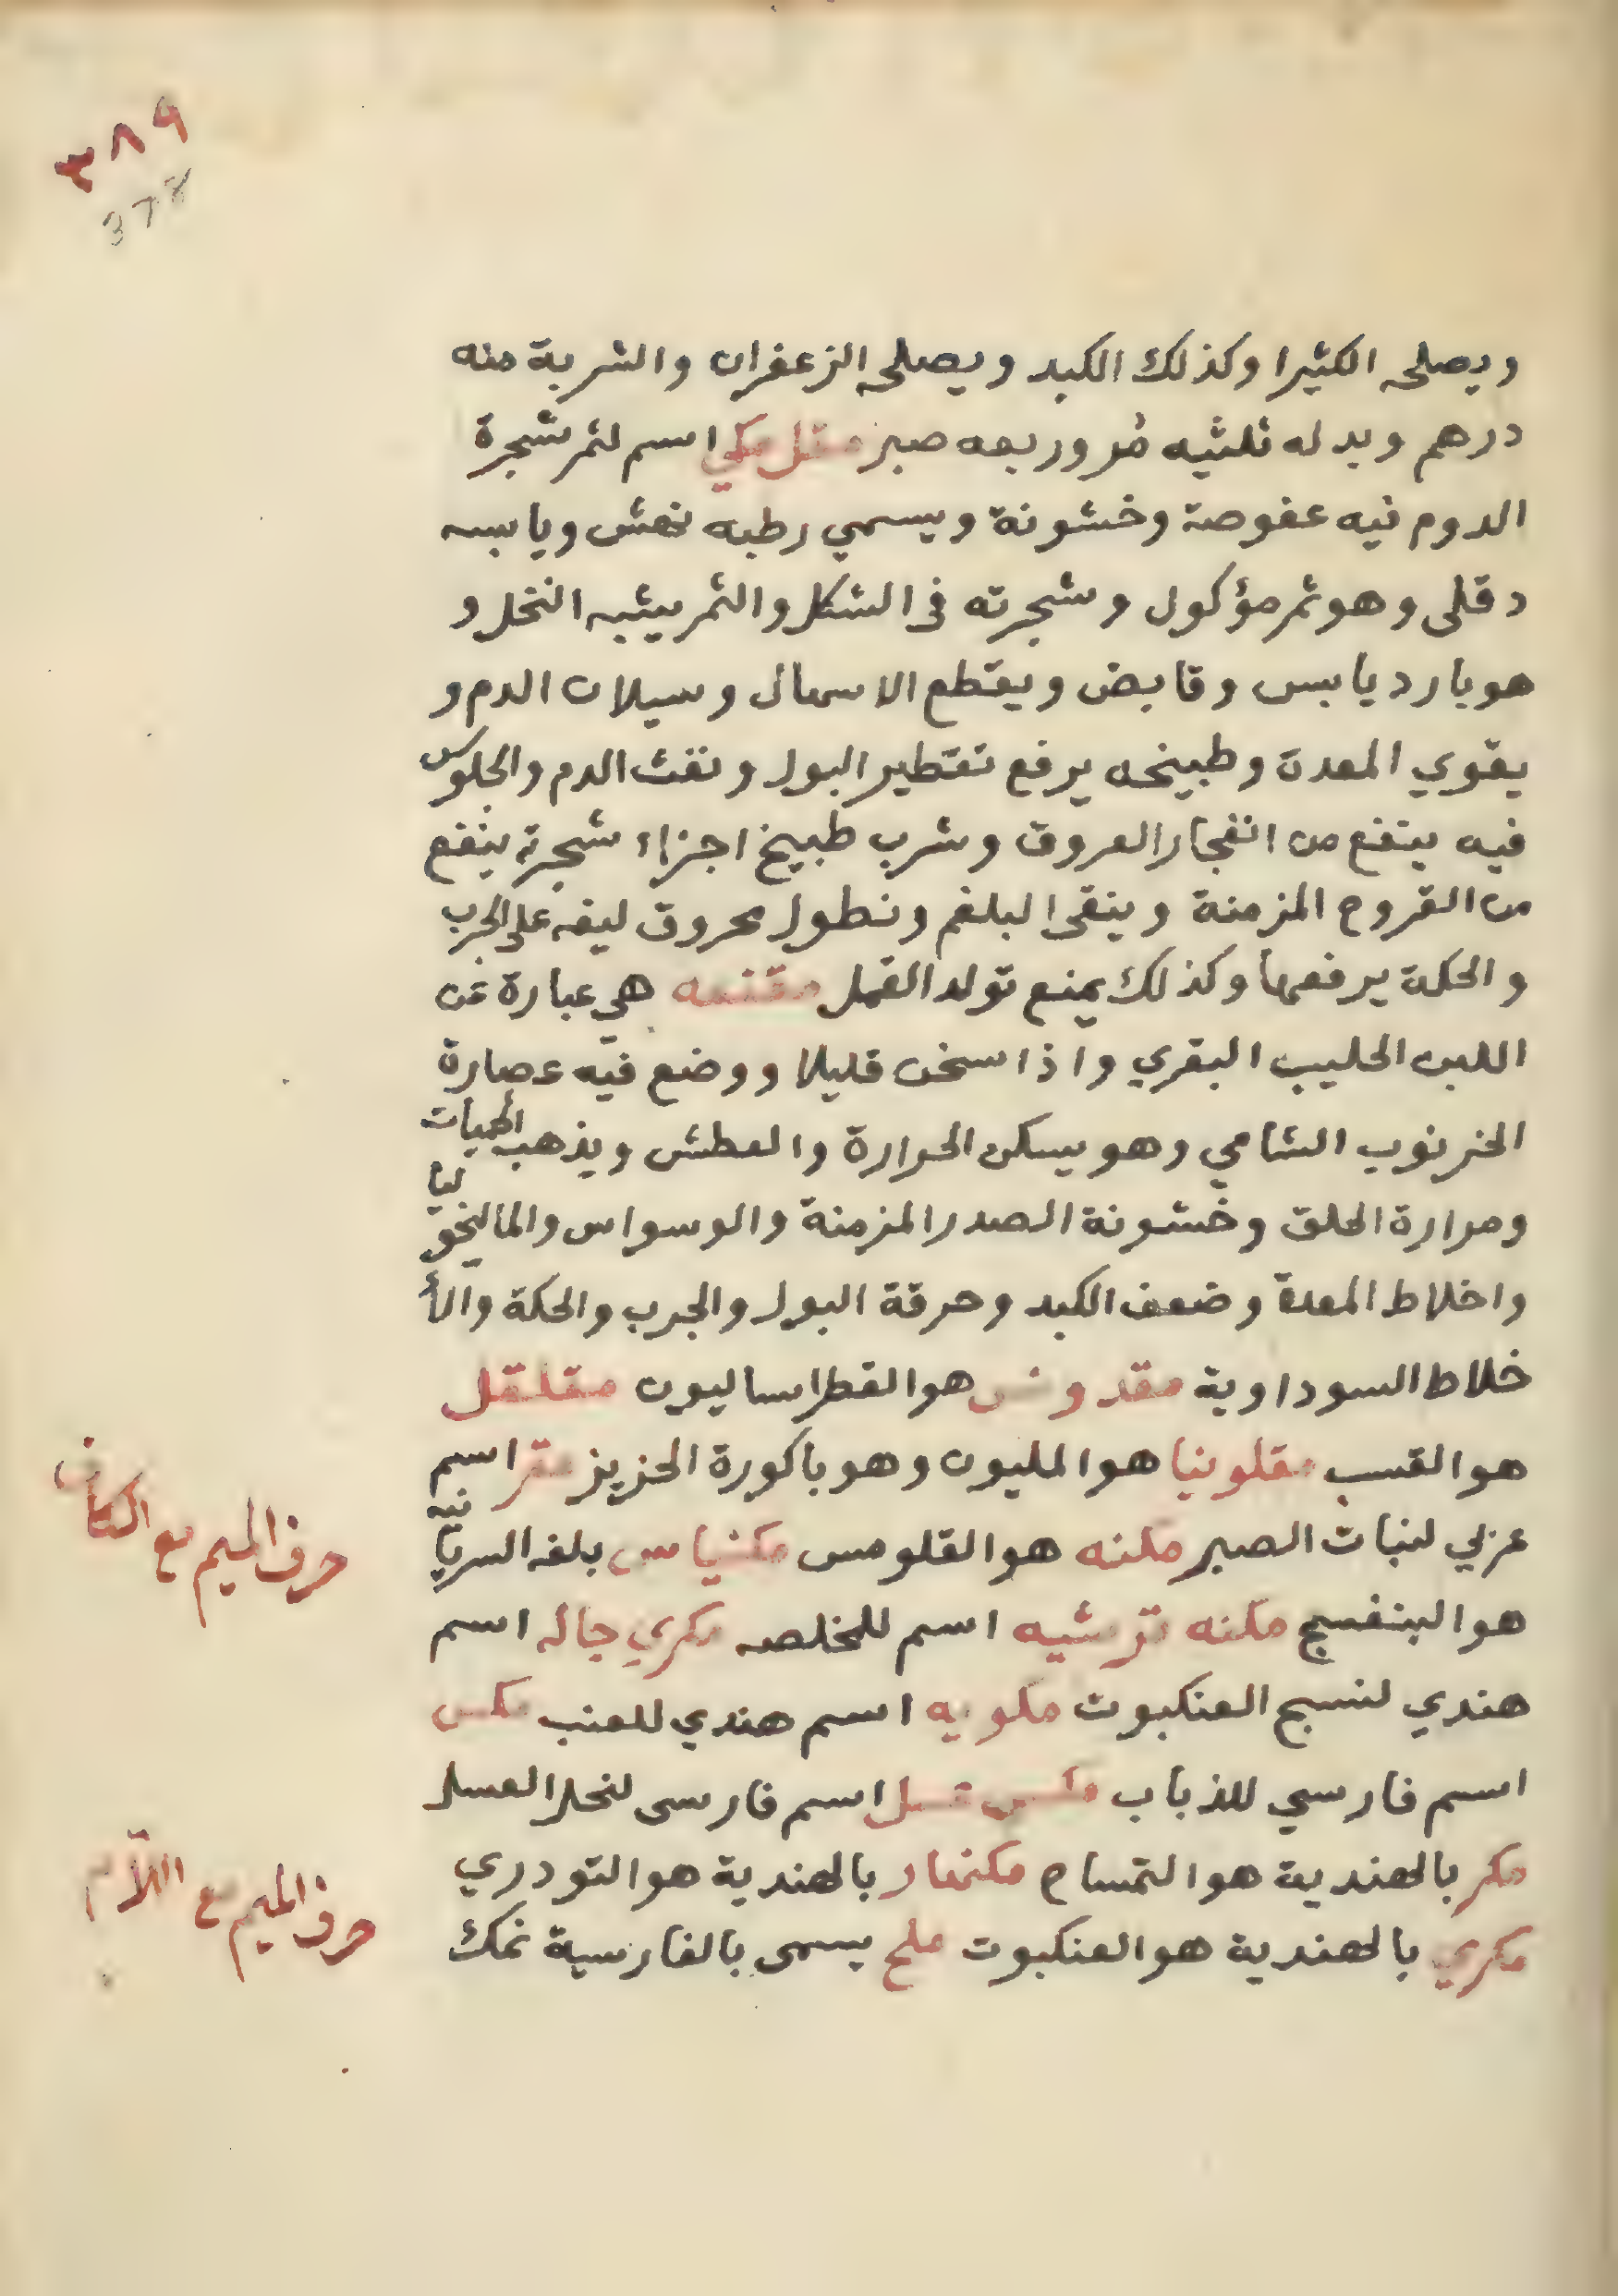 ٣٨٩
378
ويصلحه الكثيرا وكذلك الكبد ويصلحه الزعفران والشربة منه
درهم وبدله ثلثيه مر وربعه صبر مقل مكي اسم لثمر شجرة
الدوم فيه عفوصة وخشونة ويسمي رطبه نهش ويابسه
دقلى وهو ثمر مؤكول وشجرته في الشكل والثمر يشبه النخل و
هو بارد يابس وقابض ويقطع الاسهال وسيلان الدم و
يقوي المعدة وطبيخه يرفع تقطير البول ونفث الدم والجلوس
فيه ينفع من انفجار العروق وشرب طبيخ اجزاء شجرته ينفع
من القروح المزمنة وينقى البلغم ونطول محروق ليفه على الجرب
والحكة يرفعها وكذلك يمنع تولد القمل مقنعه هي عبارة عن
اللبن الحليب البقري واذا سخن قليلا ووضع فيه عصارة
الخرنوب الشامي وهو يسكن الحرارة والعطش ويذهب الحميات
ومرارة الحلق وخشونة الصدر المزمنة والوسواس والماليخوليا
واخلاط المعدة وضعف الكبد وحرقة البول والجرب والحكة والأ
خلاط السوداوية مقدونس هو الفطراساليون مقلقل
هو القسب مقلونيا هو المليون وهو باكورة الحزيز مقر اسم
عربي لنبات الصبر مكنه هو القلومس مكنياس بلغه السريانيه
هو البنفسج مكنه ترشيه اسم للخلصه مكري جاله اسم
هندي لنسج العنكبوت مكويه اسم هندي للعنب مكس
اسم فارسي للذباب مكس عسل اسم فارسى لنحل العسل
مكر بالهندية هو التمساح مكنهار بالهندية هو التودري
مكري بالهندية هو العنكبوت ملح يسمى بالفارسية نمك
حرف الميم مع الكاف
حرف الميم مع اللام